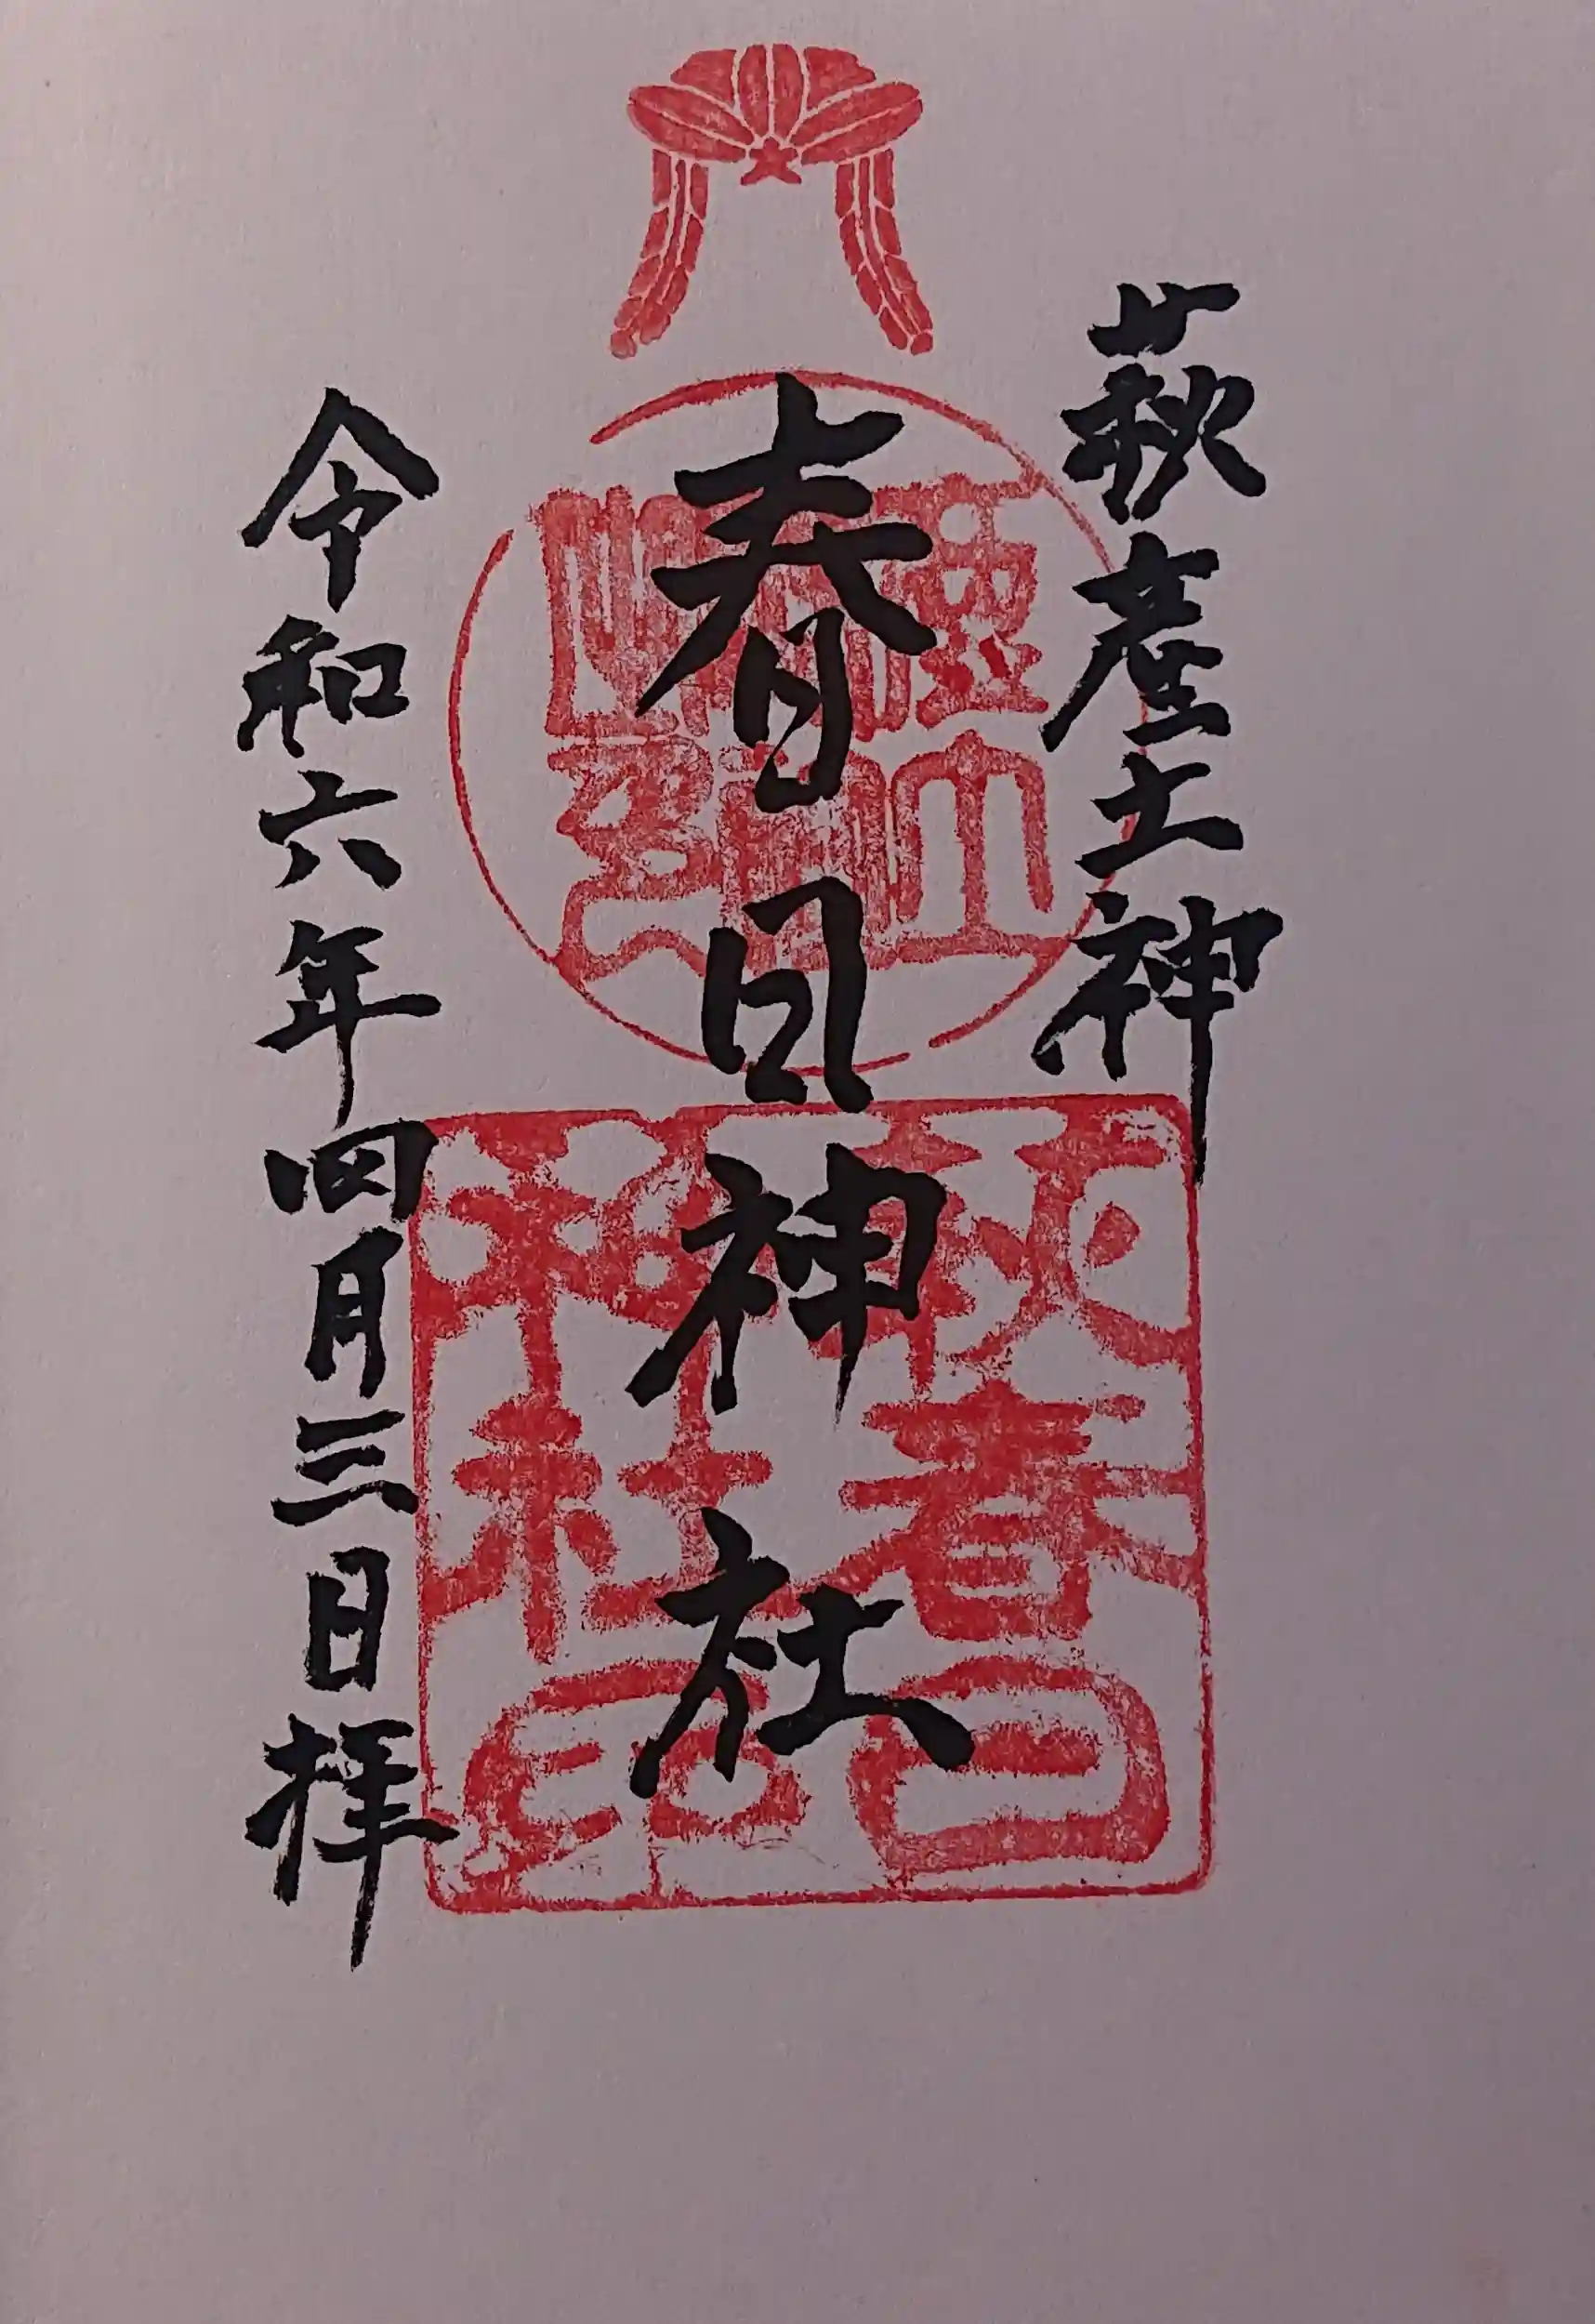 萩産土神
春日神社
令和六年四月三日拝
萩春日
神社印